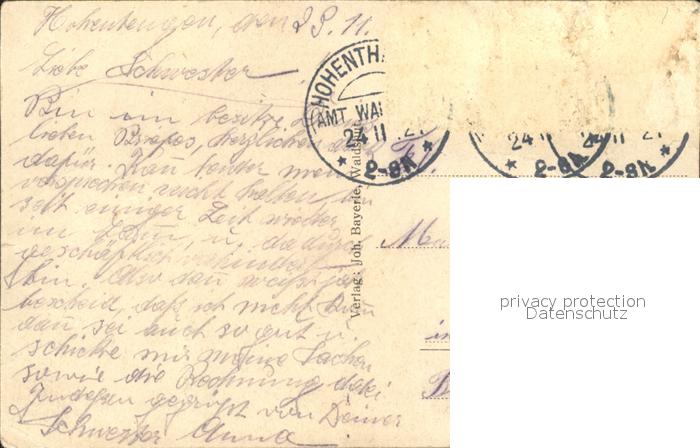 Hohentengen, den 23.11.
Liebe Schwester
Bin im besitze
lieben Briefes, herzlichen
dafür. Kann leider mein
versprechen nicht halten, bin
seit einiger Zeit wieder
im u. dadurch
geschäftlich verhindert
bin. Also dan weist jetzt
bescheid, daß ich nicht kann
dan sei auch so gut u.
schicke mir meine Sachen
sowie die Rechnung dabei
Indessen gegrüßt von Deiner
Schwester Anna
HOHENTH
AMT WAL
24 11 21
2-8N.
24 11
2-8N.
24 11 21
2-8N.
Verlag: Joh. Bayerle, Walds
in
privacy protection
Datenschutz